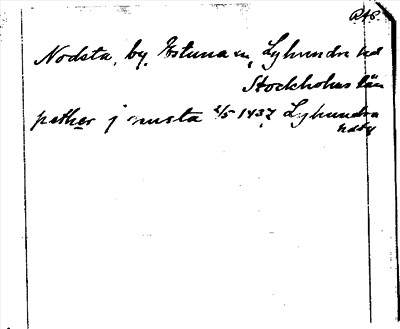 Nodsta, by, Estuna sn, Lyhundra hd
Stockholms län
pether j nusta 2/5 1437, Lyhundra